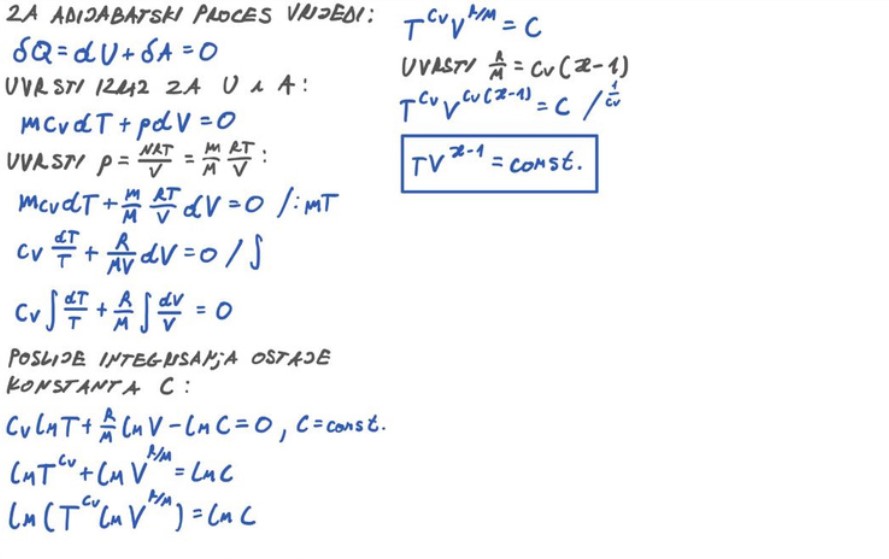 ZA ADIJABATSKI PROCES VRIJEDI:
δQ = dU + δA = 0
UVRSTI IZRAZ ZA U i A:
mcvdT + pdV = 0
UVRSTI p = NRT/V = m/M RT/V :
mcvdT + m/M RT/V dV = 0 /: mT
cv dT/T + R/MV dV = 0 / ∫
cv ∫ dT/T + R/M ∫ dV/V = 0
POSLIJE INTEGRISANJA OSTAJE
KONSTANTA C:
cv ln T + R/M ln V - ln C = 0, C = const.
ln T^cv + ln V^R/M = ln C
ln (T^cv ln V^R/M) = ln C
T^cv V^R/M = C
UVRSTI R/M = cv(ϰ-1)
T^cv V^cv(ϰ-1) = C / ^1/cv
TV^ϰ-1 = const.